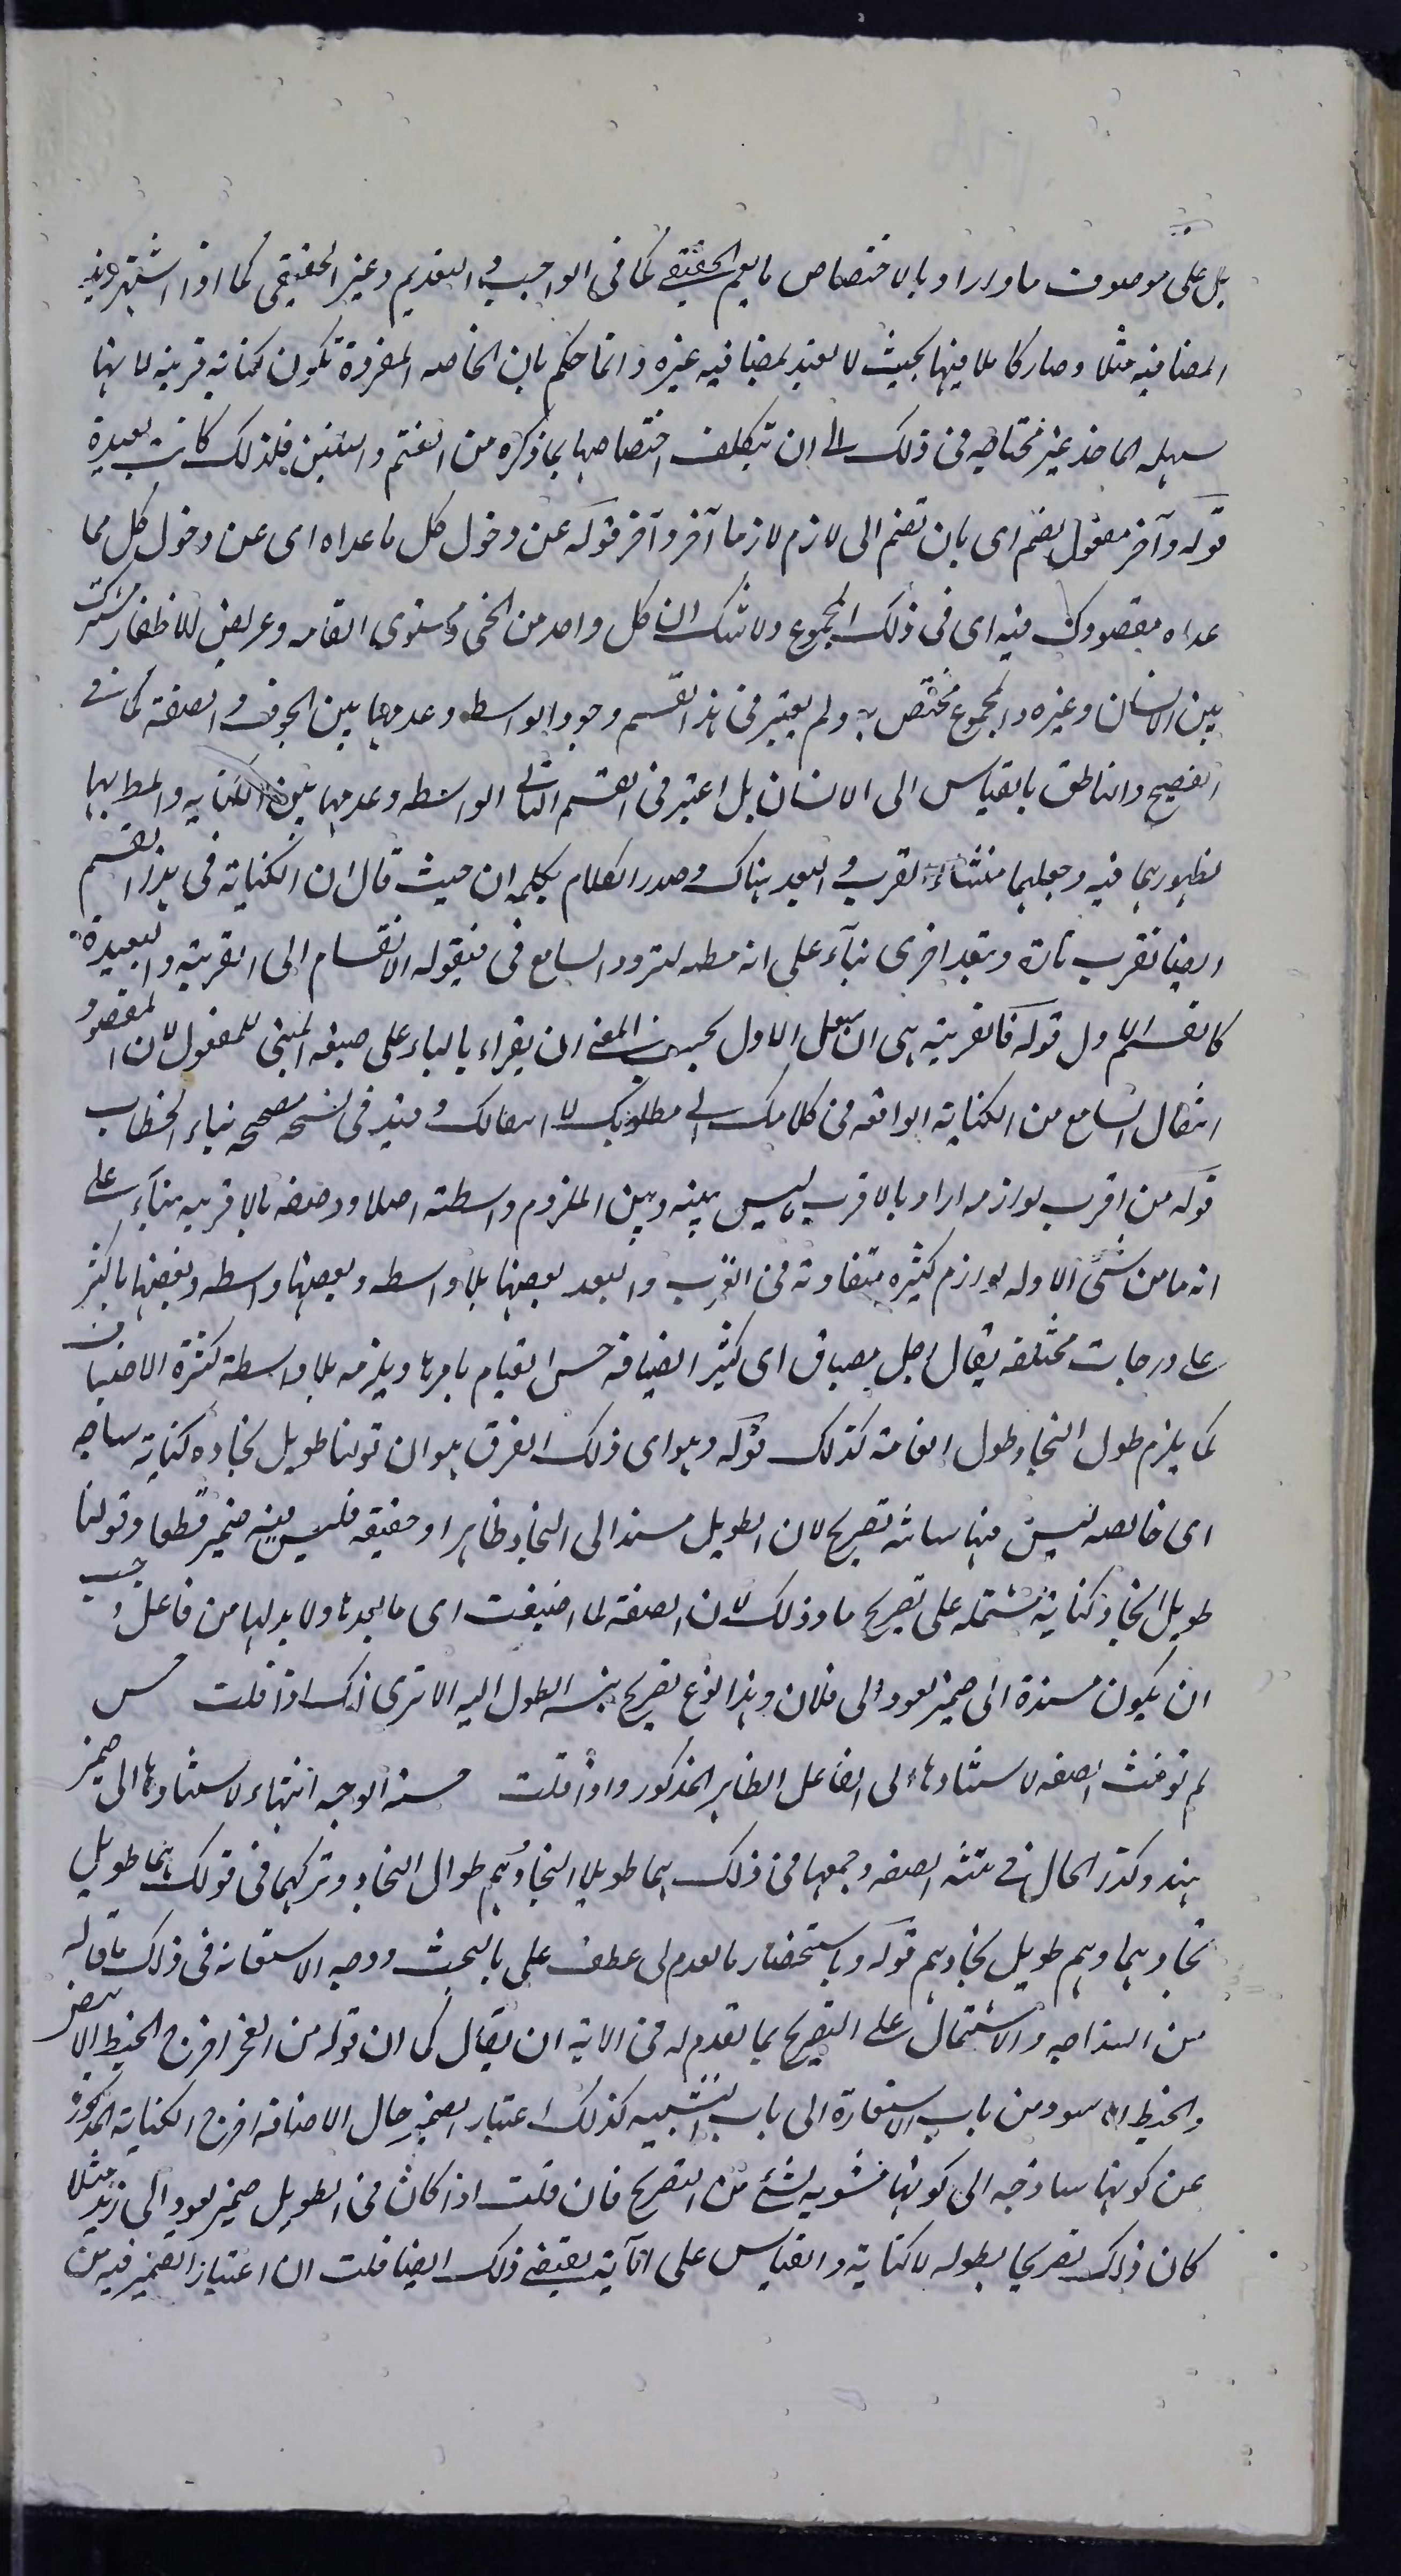 بل على موصوف ما واراد بالاختصاص ما يعم الحقيقى كما فى الواجب و القديم وغير الحقيقى كما اذا اشتهر زيد
المضافيه مثلا وصار كاملا فيها بحيث لا يعتد بمضيافيه غيره وانما حكم بان الخاصه المفردة تكون كناية قريبه لانها
سهله الماخذ غير محتاجه فى ذلك الى ان تتكلف اختصاصها بما ذكره من الضم و التلفيق فلذلك كانت بعيدة
قوله وآخر مفعول يضم اى بان تضم الى لازم لازما آخر وآخر قوله عن دخول كل ما عداه اى عن دخول كل مما
عداه مقصودك فيه اى فى ذلك المجموع ولا شك ان كل واحد من الحى و مستوى القامه وعريض الاظفار مشترك
بين الانسان وغيره والمجموع مختص به ولم يعتبر فى هذا القسم وجود الواسطه وعدمها بين الموصوف و الصفة كما فى
الفصيح والناطق بالقياس الى الانسان بل اعتبر فى القسم الثانى الواسطه وعدمها بين الكنايه والمط بها
لظهورهما فيه وجعلهما منشاء القرب و البعد هناك وصدر الكلام بكلمه ان حيث قال ان الكناية فى هذا القسم
ايضا تقرب تارة وتبعد اخرى بناء على انه مظنه لتردد السامع فى قبوله الانقسام الى القريبة والبعيدة
كالقسم الاول قوله فالقريبة هى ان ينتقل الاول بحسب المعنى ان يقراء بالياء على صيغه المبنى للمفعول لان المقصود
انتقال السامع من الكناية الواقعه فى كلامك الى مطلوبك لا انتقالك و قيد فى نسخه مصححه بتاء الخطاب
قوله من اقرب لوازمه اراد بالاقرب ما ليس بينه وبين الملزوم واسطة اصلا ووصفه بالاقربيه بناء على
انه ما من شئ الا وله لوازم كثيره متفاوتة فى القرب والبعد بعضها بلا واسطه وبعضها بواسطه وبعضها باكثر
على درجات مختلفه يقال رجل مضياف اى كثير الضيافه حسن القيام بامرها ويلزمه بلا واسطة كثرة الاضياف
كما يلزم طول النجاد طول القامة كذلك قوله وهو اى ذلك الفرق هو ان قولنا طويل نجاده كناية ساذجه
اى خالصه ليس فيها شائبه تصريح لان الطويل مسند الى النجاد ظاهرا وحقيقه فليس فيه ضمير قطعا وقولنا
طويل النجاد كناية مشتمله على تصريح ما وذلك لان الصفة لما اضيفت اى ما بعدها ولا بد لها من فاعل وجب
ان يكون مسندة الى ضمير يعود الى فلان وهذا نوع تصريح بنسبه الطول اليه الا ترى انك اذا قلت حسن
لم تونث الصفه لاستنادها الى الفاعل الظاهر المذكور واذا قلت حسنة الوجه انثتها لاسنادها الى ضمير
هند وكذا الحال فى تثنيه الصفه وجمعها فى ذلك هما طويلا النجاد وهم طوال النجاد وتركهما فى قولك هما طويل
نجادهما وهم طويل نجادهم قوله وباستحضار ما تقدم لى عطف على بالبحث ووجه الاستعانه فى ذلك ما قاله
من السذاجه والاشتمال على التصريح بما تقدم له فى الاية ان يقال كما ان قوله من الفجر اخرج الخيط الابيض
والخيط الاسود من باب الاستعارة الى باب التشبيه كذلك اعتبار الضمير حال الاضافه اخرج الكناية المذكورة
عن كونها ساذجه الى كونها مشوبه بشئ من التصريح فان قلت اذا كان فى الطويل ضمير يعود الى زيد مثلا
كان ذلك تصريحا بطوله لا كناية والقياس على الآية يقتضى ذلك ايضا قلت ان اعتبار الضمير فيه من